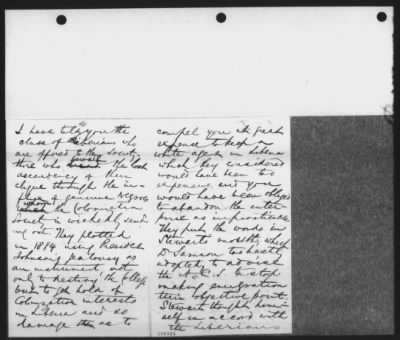 I have told you the
class of Liberians who
are opposed to the Society
those who the lost
ascendency of their
clique through the
of genuine Negroes
the Colonization
Society is wickedly send
ing out. They plotted
in 1884 using
Johnsons jealousy as
an instrument not
only to destroy the College
but to get hold of
Colonization interests
in Liberia and so
damage them as to
compel you at great
expense to keep a
white agent in Liberia
which they considered
would have been too
expensive and you
would have been obliged
to abandon the enter
prise as impracticable
They put the words in
Stewarts mouth, which
D Samson too hastily
adopted, to advise
the A. C. S. to stop
making emigration
their objective point.
Stewart thought him-
self in accord with
the Liberians